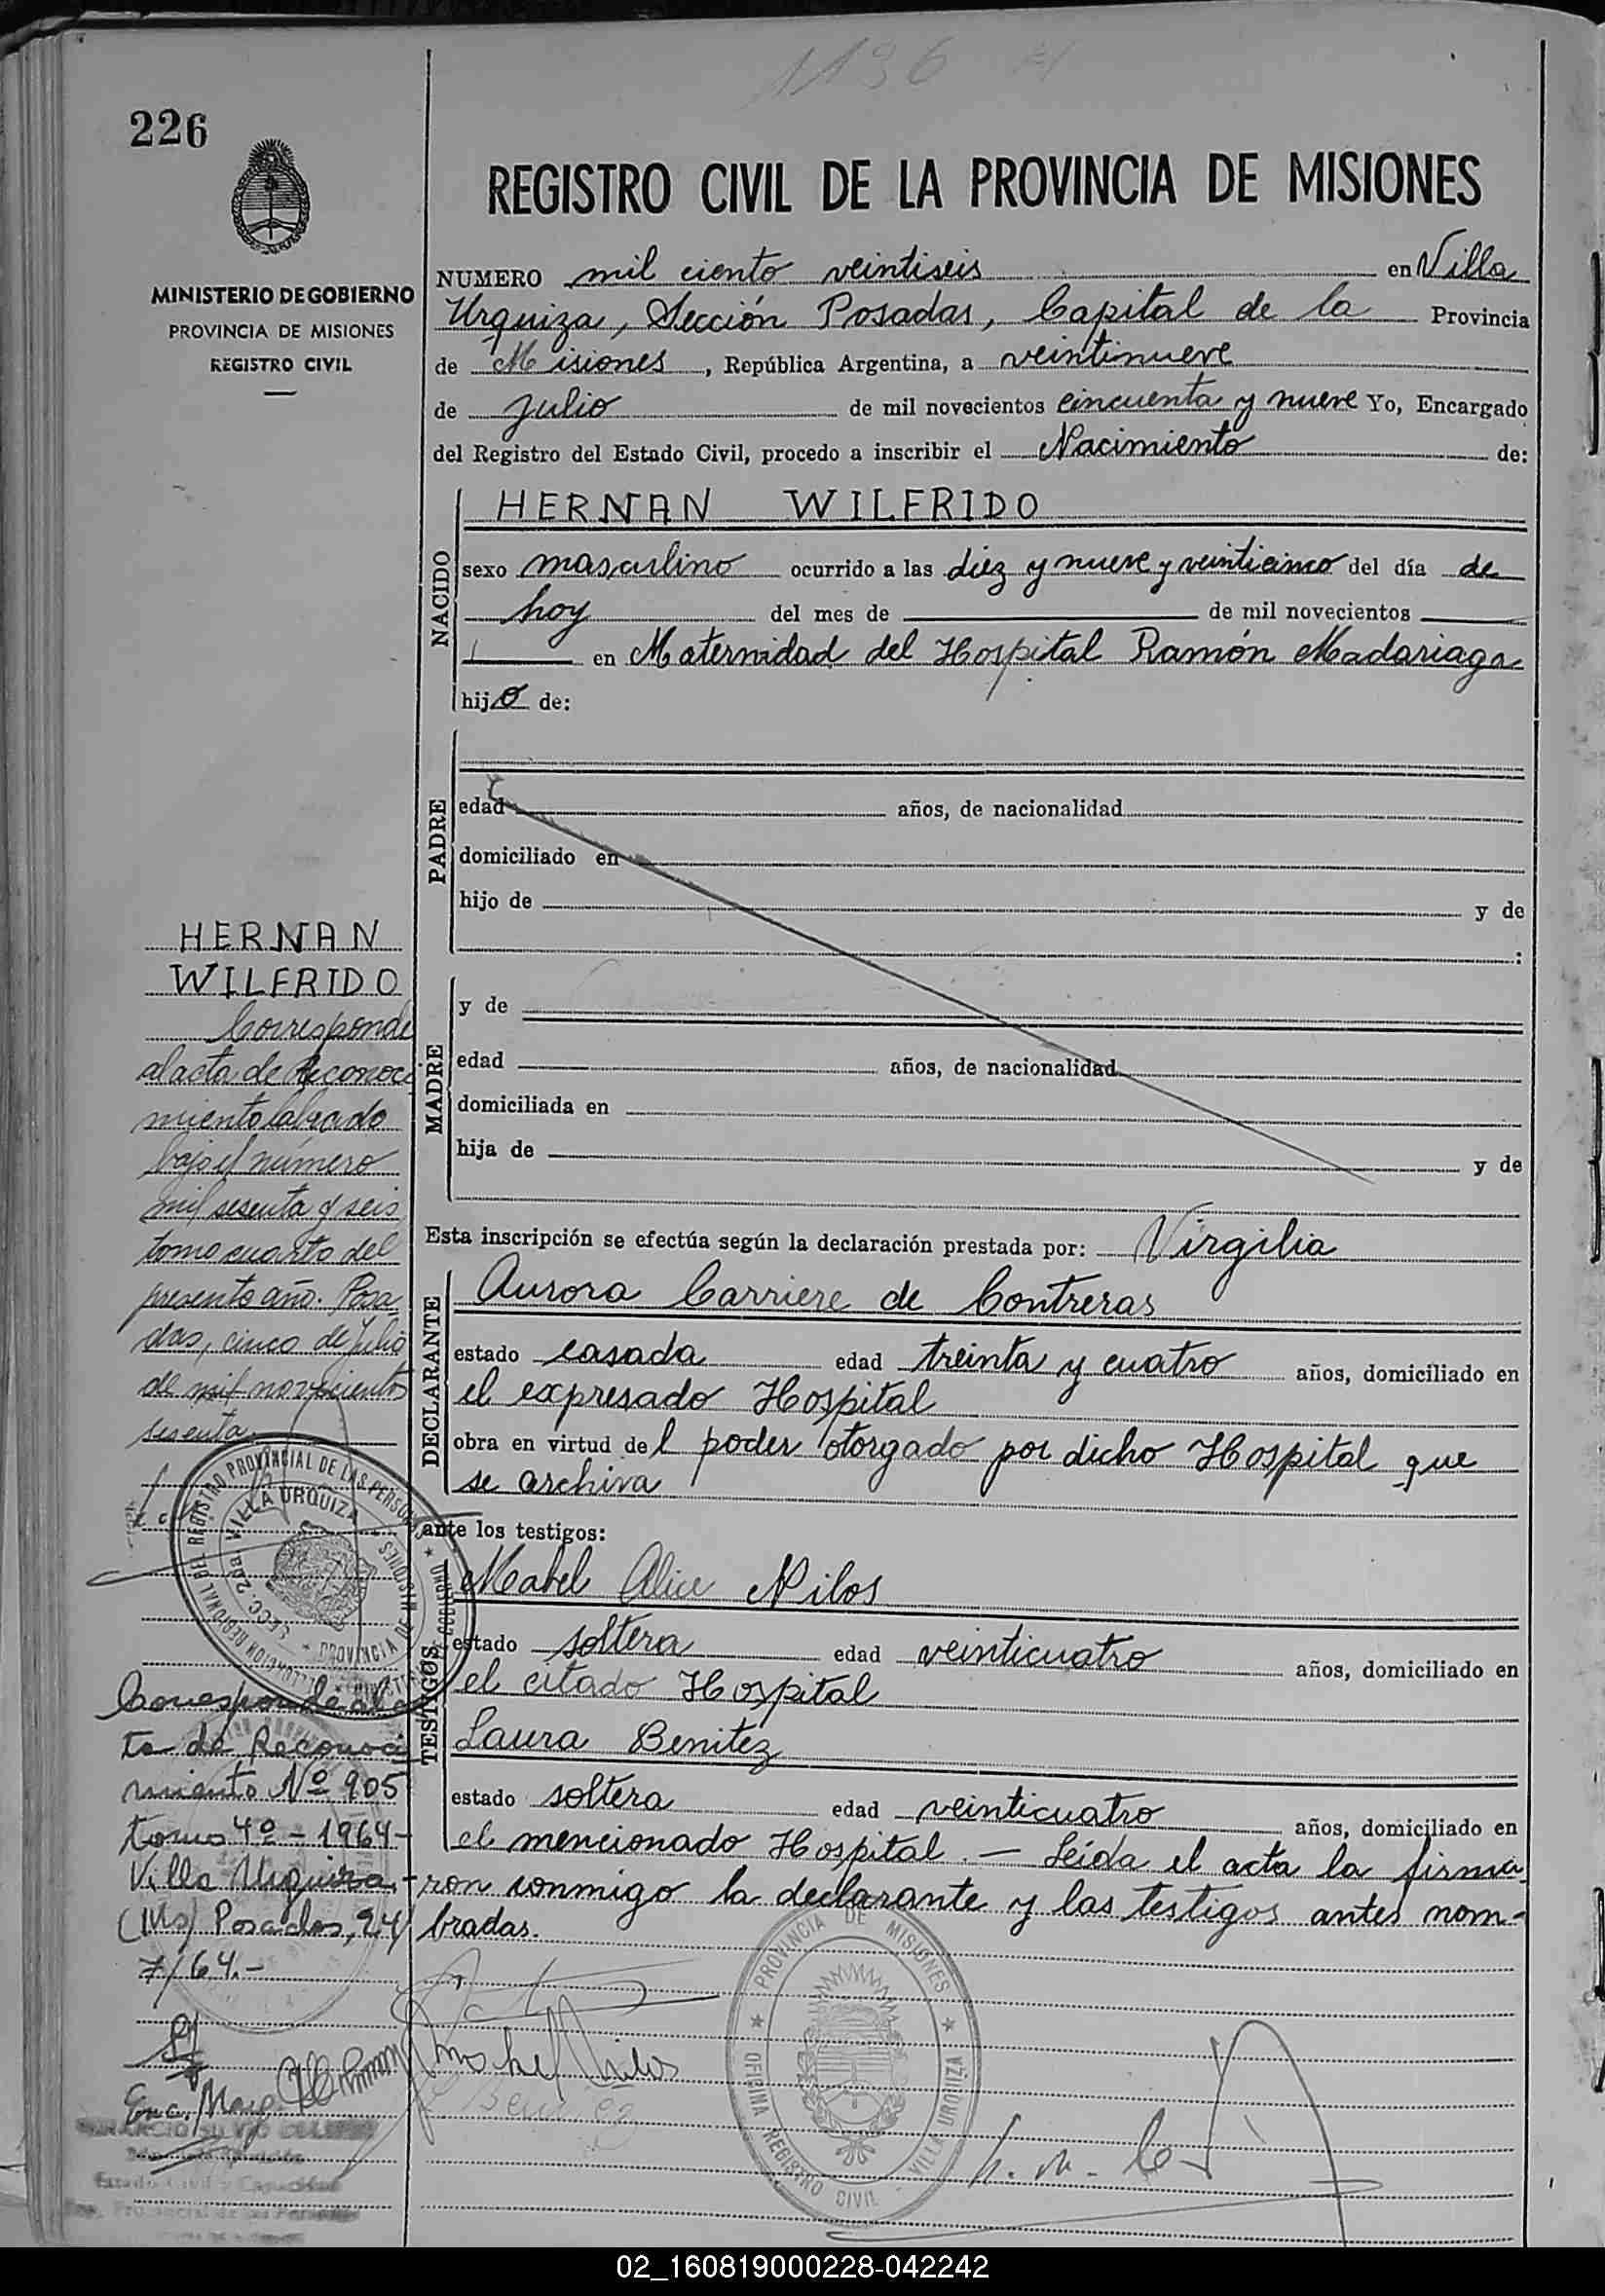 226
MINISTERIO DE GOBIERNO
PROVINCIA DE MISIONES
REGISTRO CIVIL
REGISTRO CIVIL DE LA PROVINCIA DE MISIONES
NUMERO mil ciento veintiseis en Villa
Urquiza, Sección Posadas, Capital de la Provincia
de Misiones, República Argentina, a veintinueve
de julio de mil novecientos cincuenta y nueve Yo, Encargado
del Registro del Estado Civil, procedo a inscribir el Nacimiento de:
NACIDO
HERNAN WILFRIDO
sexo masculino ocurrido a las diez y nueve y veinticinco del día de
hoy del mes de de mil novecientos
en Maternidad del Hospital Ramón Madariaga
hijo de:
PADRE
edad años, de nacionalidad
domiciliado en
hijo de y de
:
MADRE
y de
edad años, de nacionalidad
domiciliada en
hija de y de
Esta inscripción se efectúa según la declaración prestada por: Virgilia
DECLARANTE
Aurora Carriere de Contreras
estado casada edad treinta y cuatro años, domiciliado en
el expresado Hospital
obra en virtud del poder otorgado por dicho Hospital que
se archiva
ante los testigos:
TESTIGOS
Mabel Alice Nilos
estado soltera edad veinticuatro años, domiciliado en
el citado Hospital
Laura Benitez
estado soltera edad veinticuatro años, domiciliado en
el mencionado Hospital. — Leída el acta la firma
ron conmigo la declarante y las testigos antes nom-
bradas.
HERNAN
WILFRIDO
Corresponde
al acta de Reconoci
miento labrado
bajo el número
mil sesenta y seis
tomo cuarto del
presente año. Posa
das, cinco de Julio
de mil novecientos
sesenta.
VILLA URQUIZA
Corresponde al ac
ta de Reconoci
miento Nº 905
tomo 4º - 1964-
Villa Urquiza,-
(Ms) Posadas, 24/
7/64.-
PROVINCIA DE MISIONES
OFICINA REGISTRO CIVIL - VILLA URQUIZA
02_160819000228-042242